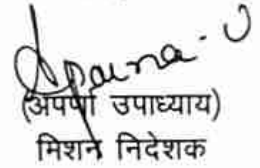 Aparna·U
(अपर्णा उपाध्याय)
मिशन निदेशक